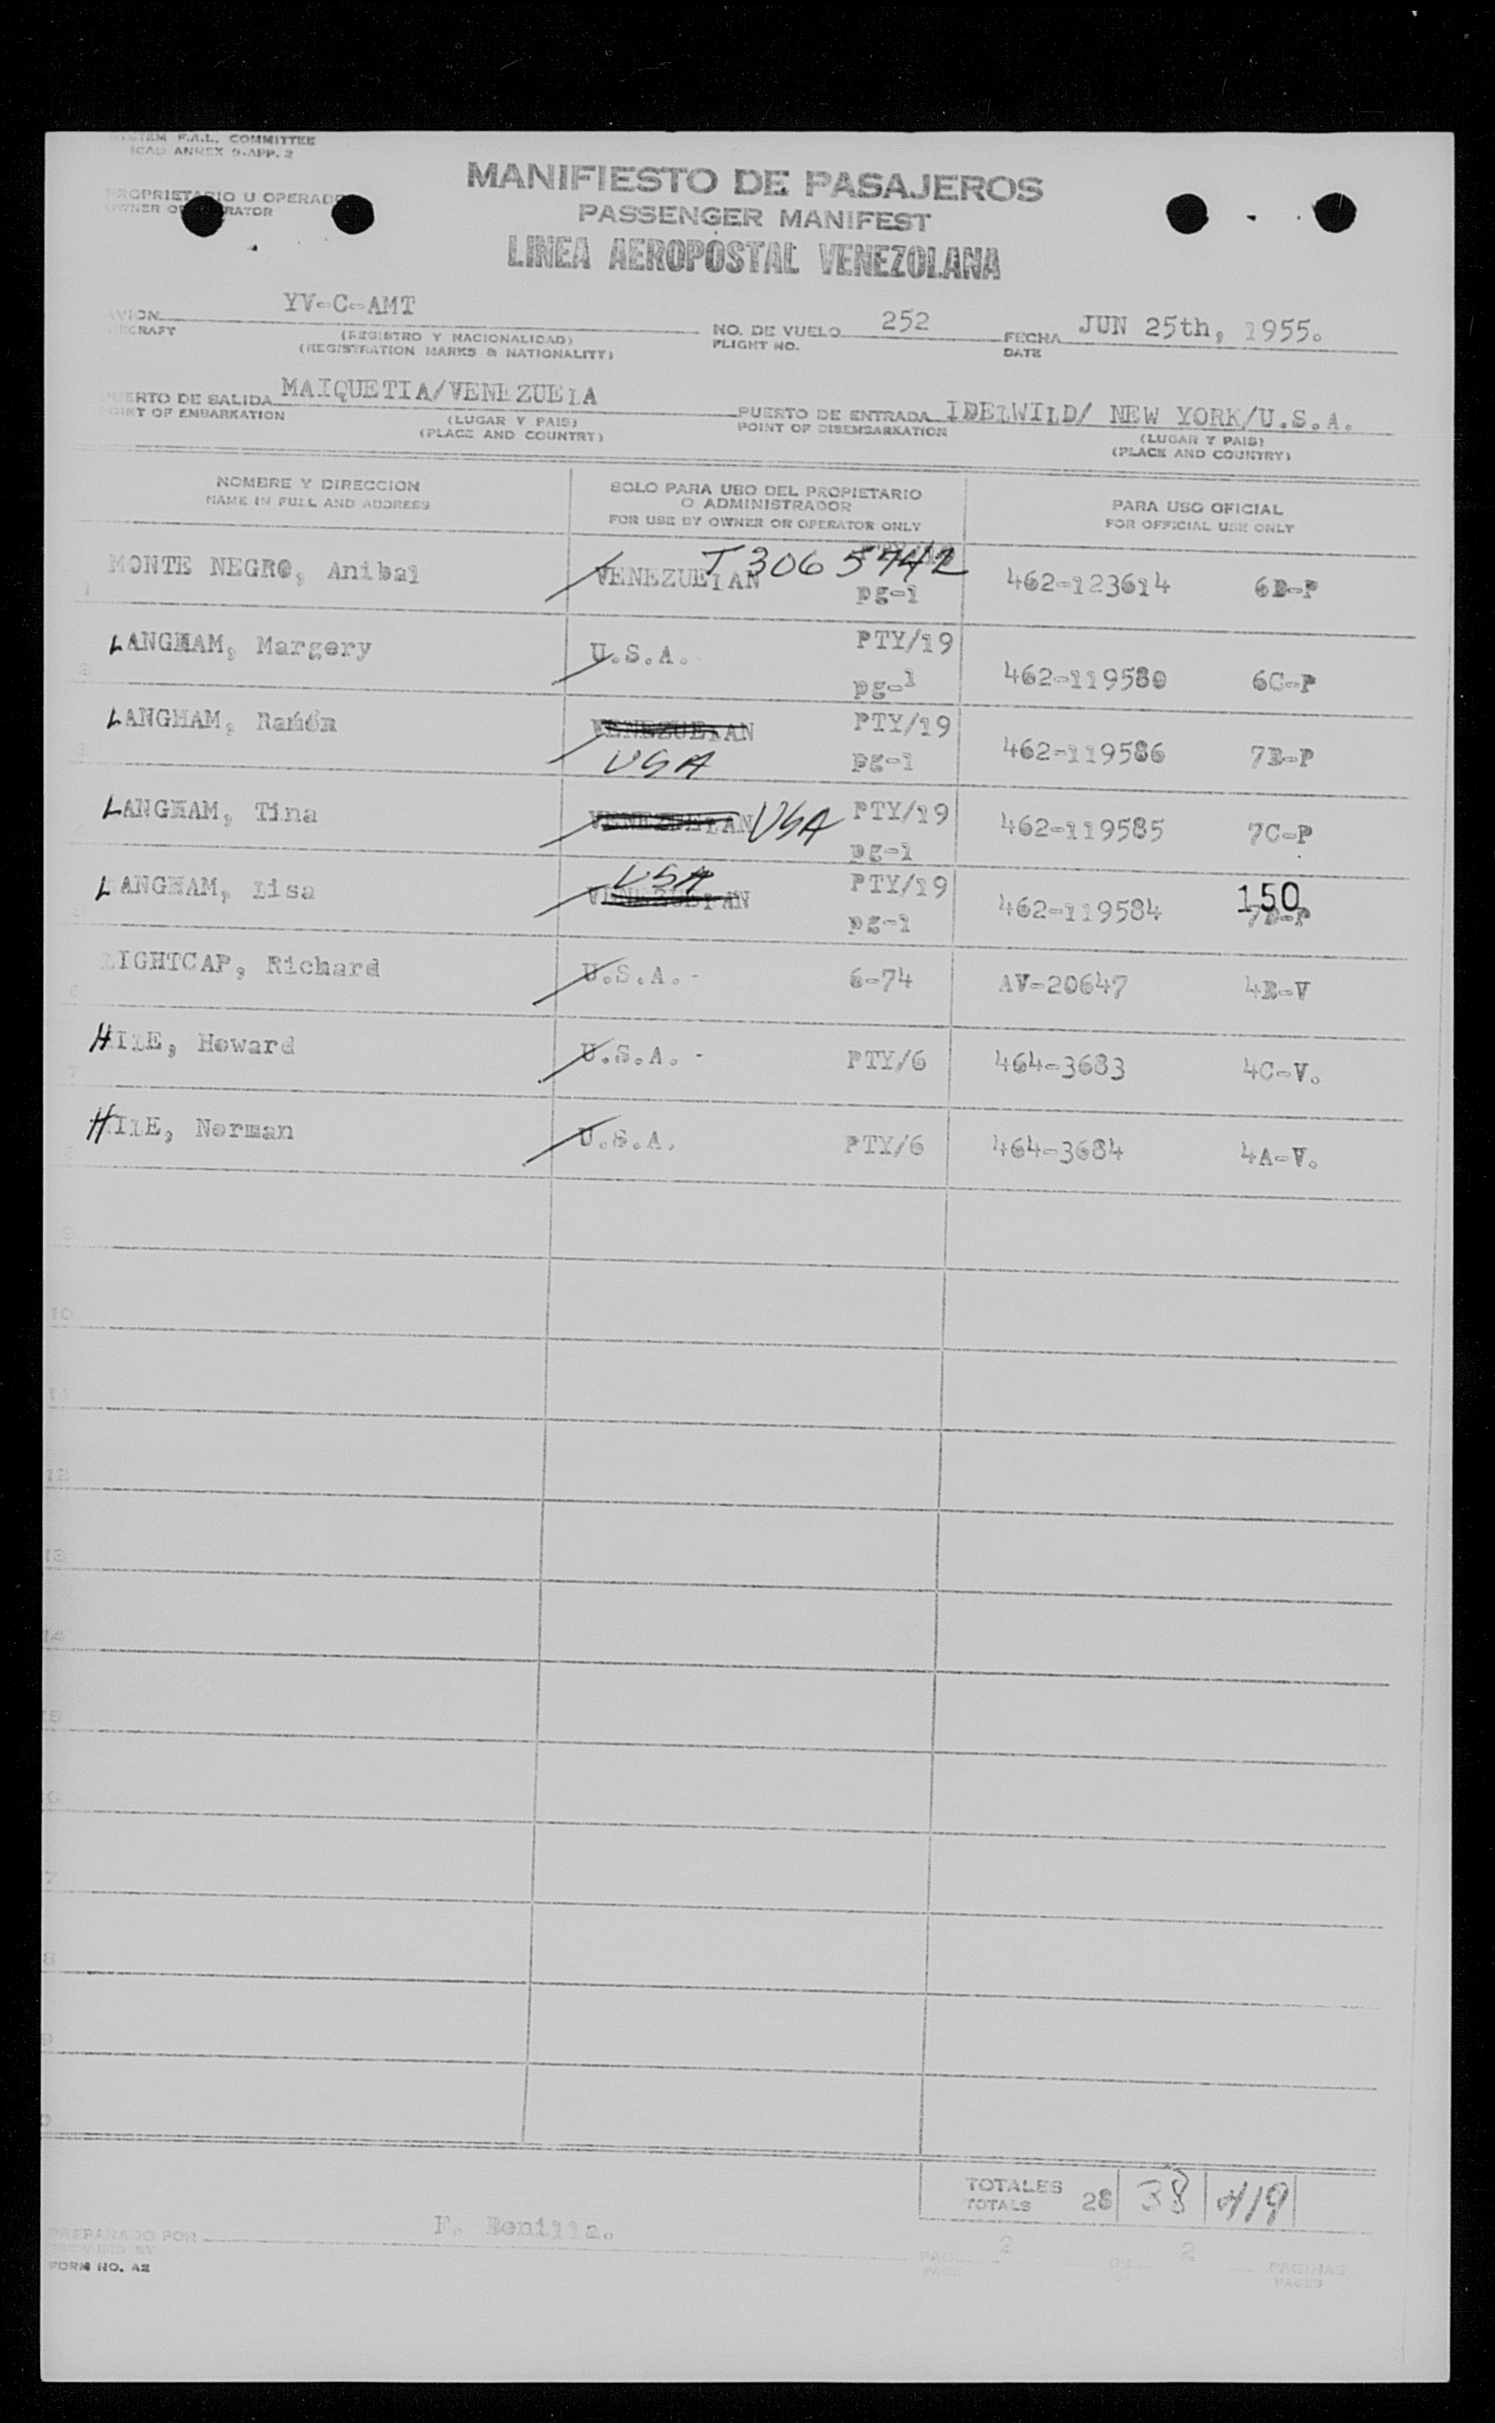 SYSTEM F.A.L. COMMITTEE
ICAO ANNEX 9-APP. 2
MANIFIESTO DE PASAJEROS
PROPRIETARIO U OPERADOR
OWNER OR OPERATOR
PASSENGER MANIFEST
LINEA AEROPOSTAL VENEZOLANA
AVION YV-C-AMT NO. DE VUELO 252 FECHA JUN 25th, 1955.
AIRCRAFT (REGISTRO Y NACIONALIDAD) FLIGHT NO. DATE
(REGISTRATION MARKS & NATIONALITY)
PUERTO DE SALIDA MAIQUETIA/VENEZUELA PUERTO DE ENTRADA IDELWILD/ NEW YORK/U.S.A.
POINT OF EMBARKATION (LUGAR Y PAIS) POINT OF DISEMBARKATION (LUGAR Y PAIS)
(PLACE AND COUNTRY) (PLACE AND COUNTRY)
NOMBRE Y DIRECCION SOLO PARA USO DEL PROPIETARIO PARA USO OFICIAL
NAME IN FULL AND ADDRESS O ADMINISTRADOR FOR OFFICIAL USE ONLY
FOR USE BY OWNER OR OPERATOR ONLY
T3065742
1 MONTE NEGRO, Anibal VENEZUELAN pg-1 462-123614 6B-P
2 LANGHAM, Margery U.S.A. PTY/19 pg-1 462-119580 6C-P
3 LANGHAM, Ramón VENEZUELAN PTY/19 462-119586 7B-P
USA pg-1
4 LANGHAM, Tina VENEZUELAN USA PTY/19 pg-1 462-119585 7C-P
USA
5 LANGHAM, Lisa VENEZUELAN PTY/19 pg-1 462-119584 7D-P
150
6 LIGHTCAP, Richard U.S.A.- 6-74 AV-20647 4B-V
7 HILE, Howard U.S.A. - PTY/6 464-3683 4C-V.
8 HILE, Norman U.S.A. PTY/6 464-3684 4A-V.
9
10
11
12
13
14
15
16
17
18
19
TOTALES 28 38 419
TOTALS
PREPARADO POR F. Bonilla.
PAG. 2 DE 2 PAGINAS
PAGE PAGES
FORM NO. A2